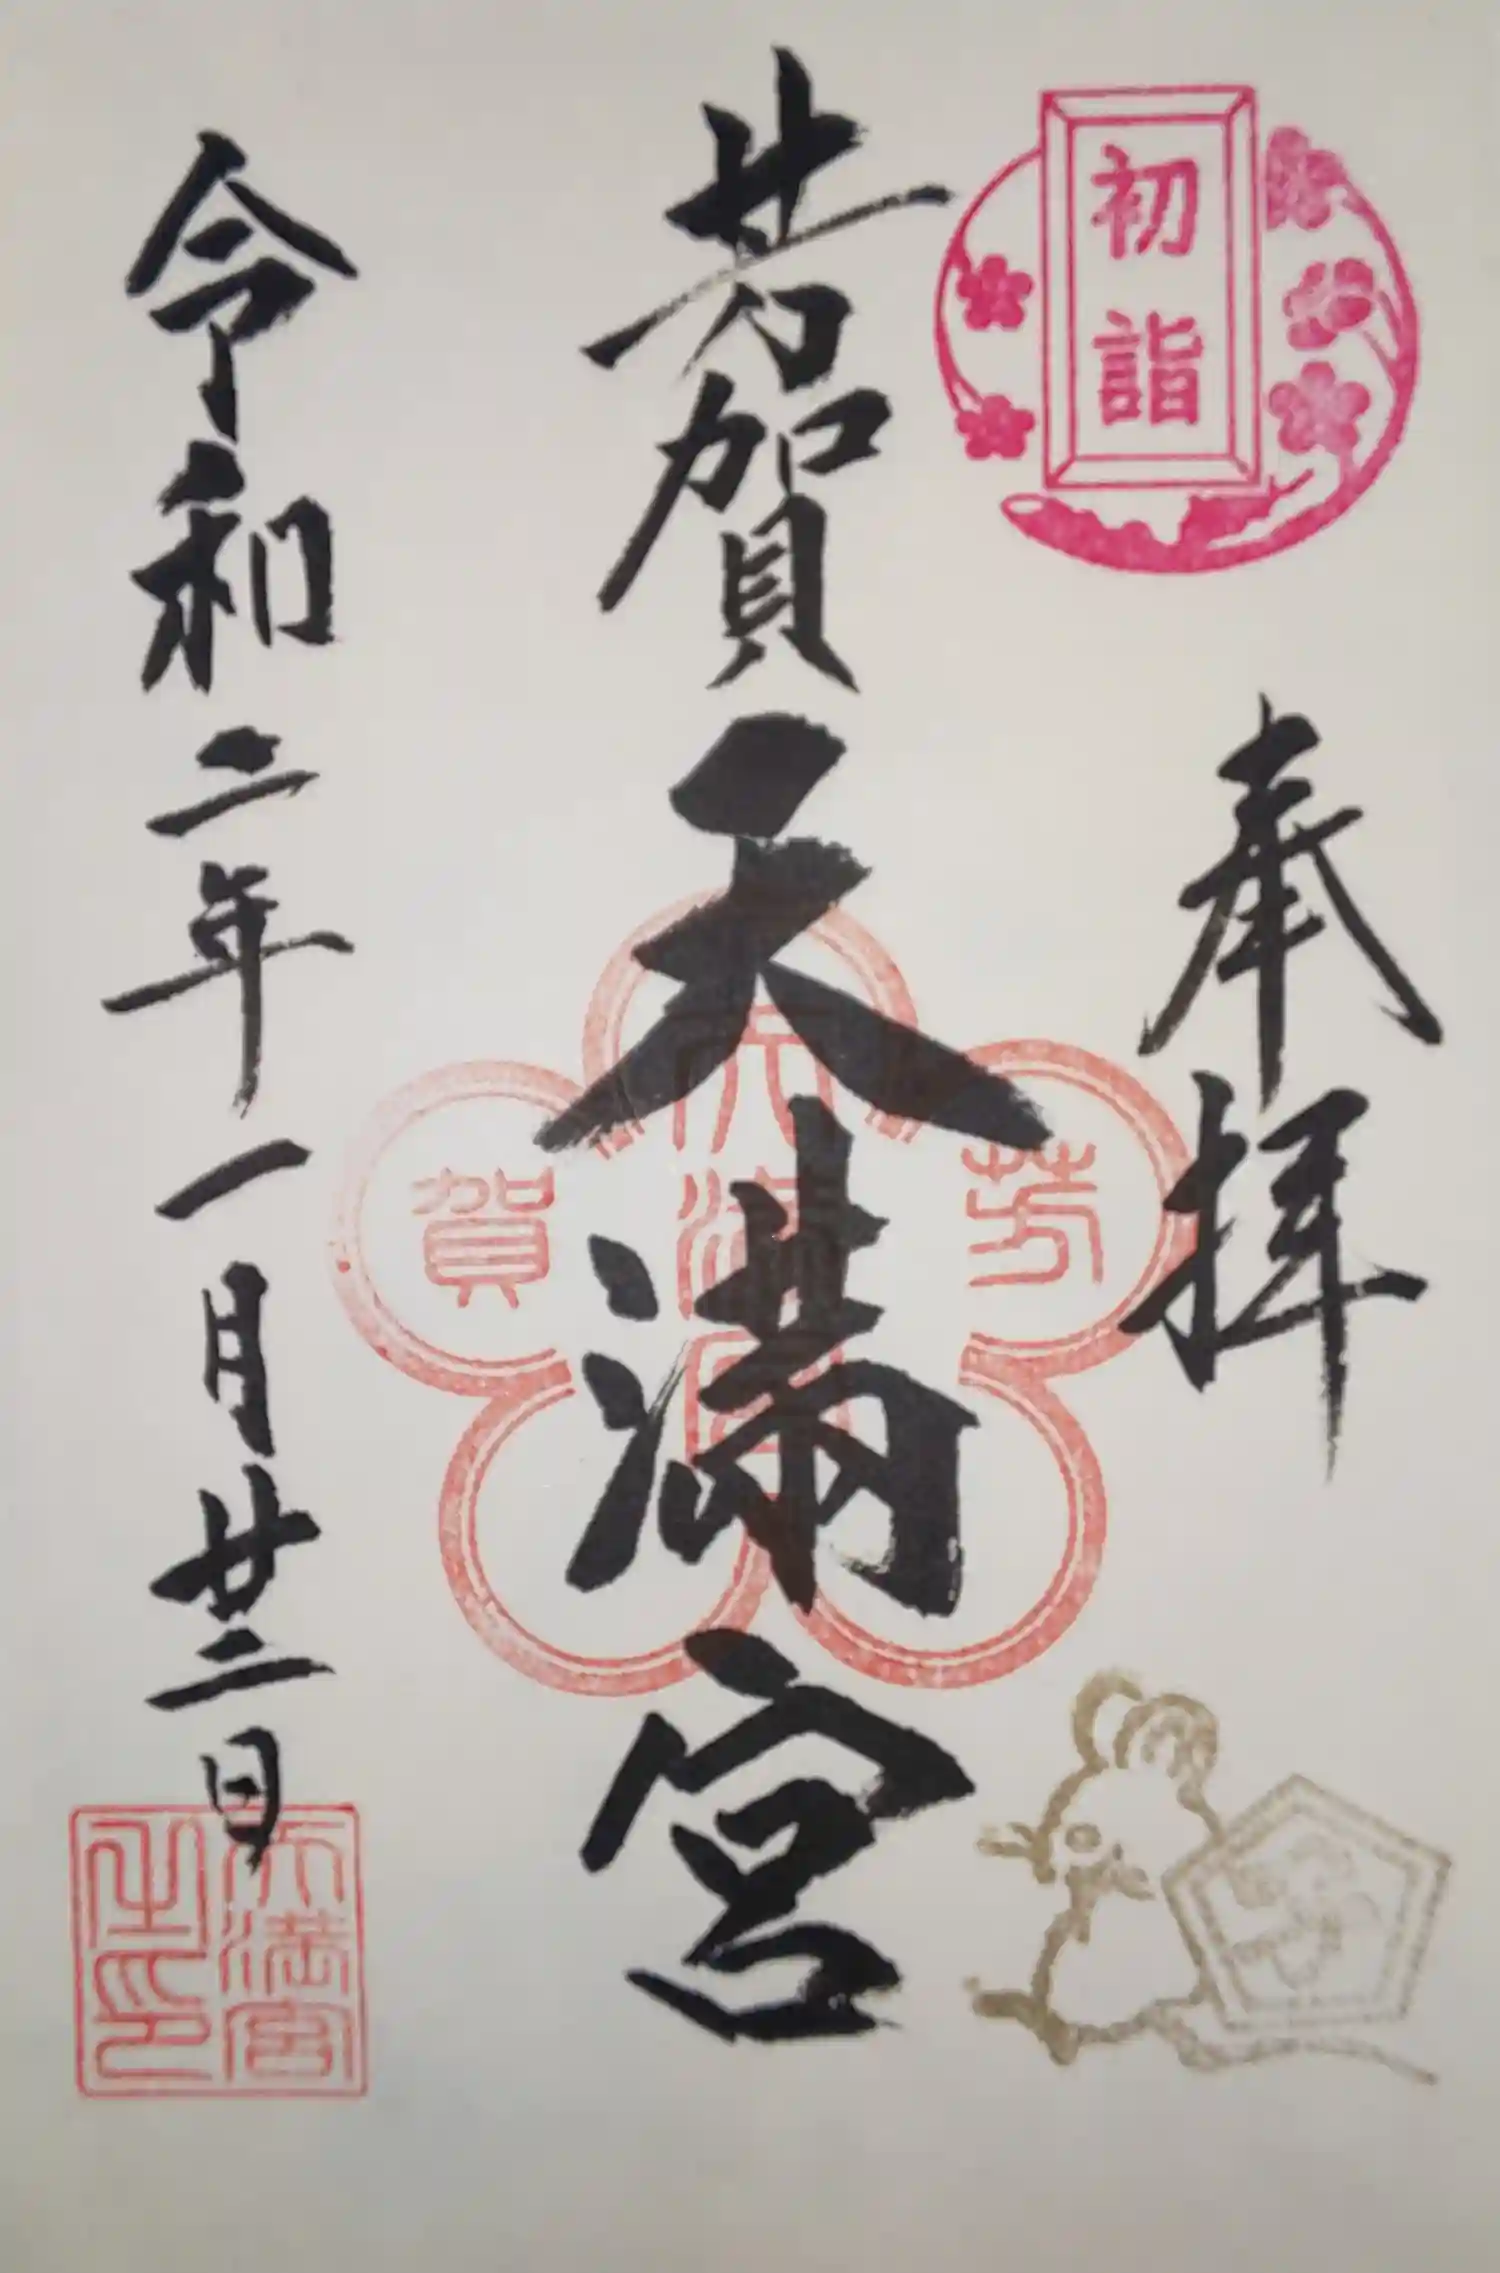 初詣
奉拝
芳賀天満宮
天満宮
芳
賀
令和二年一月廿二日
天満宮
之印